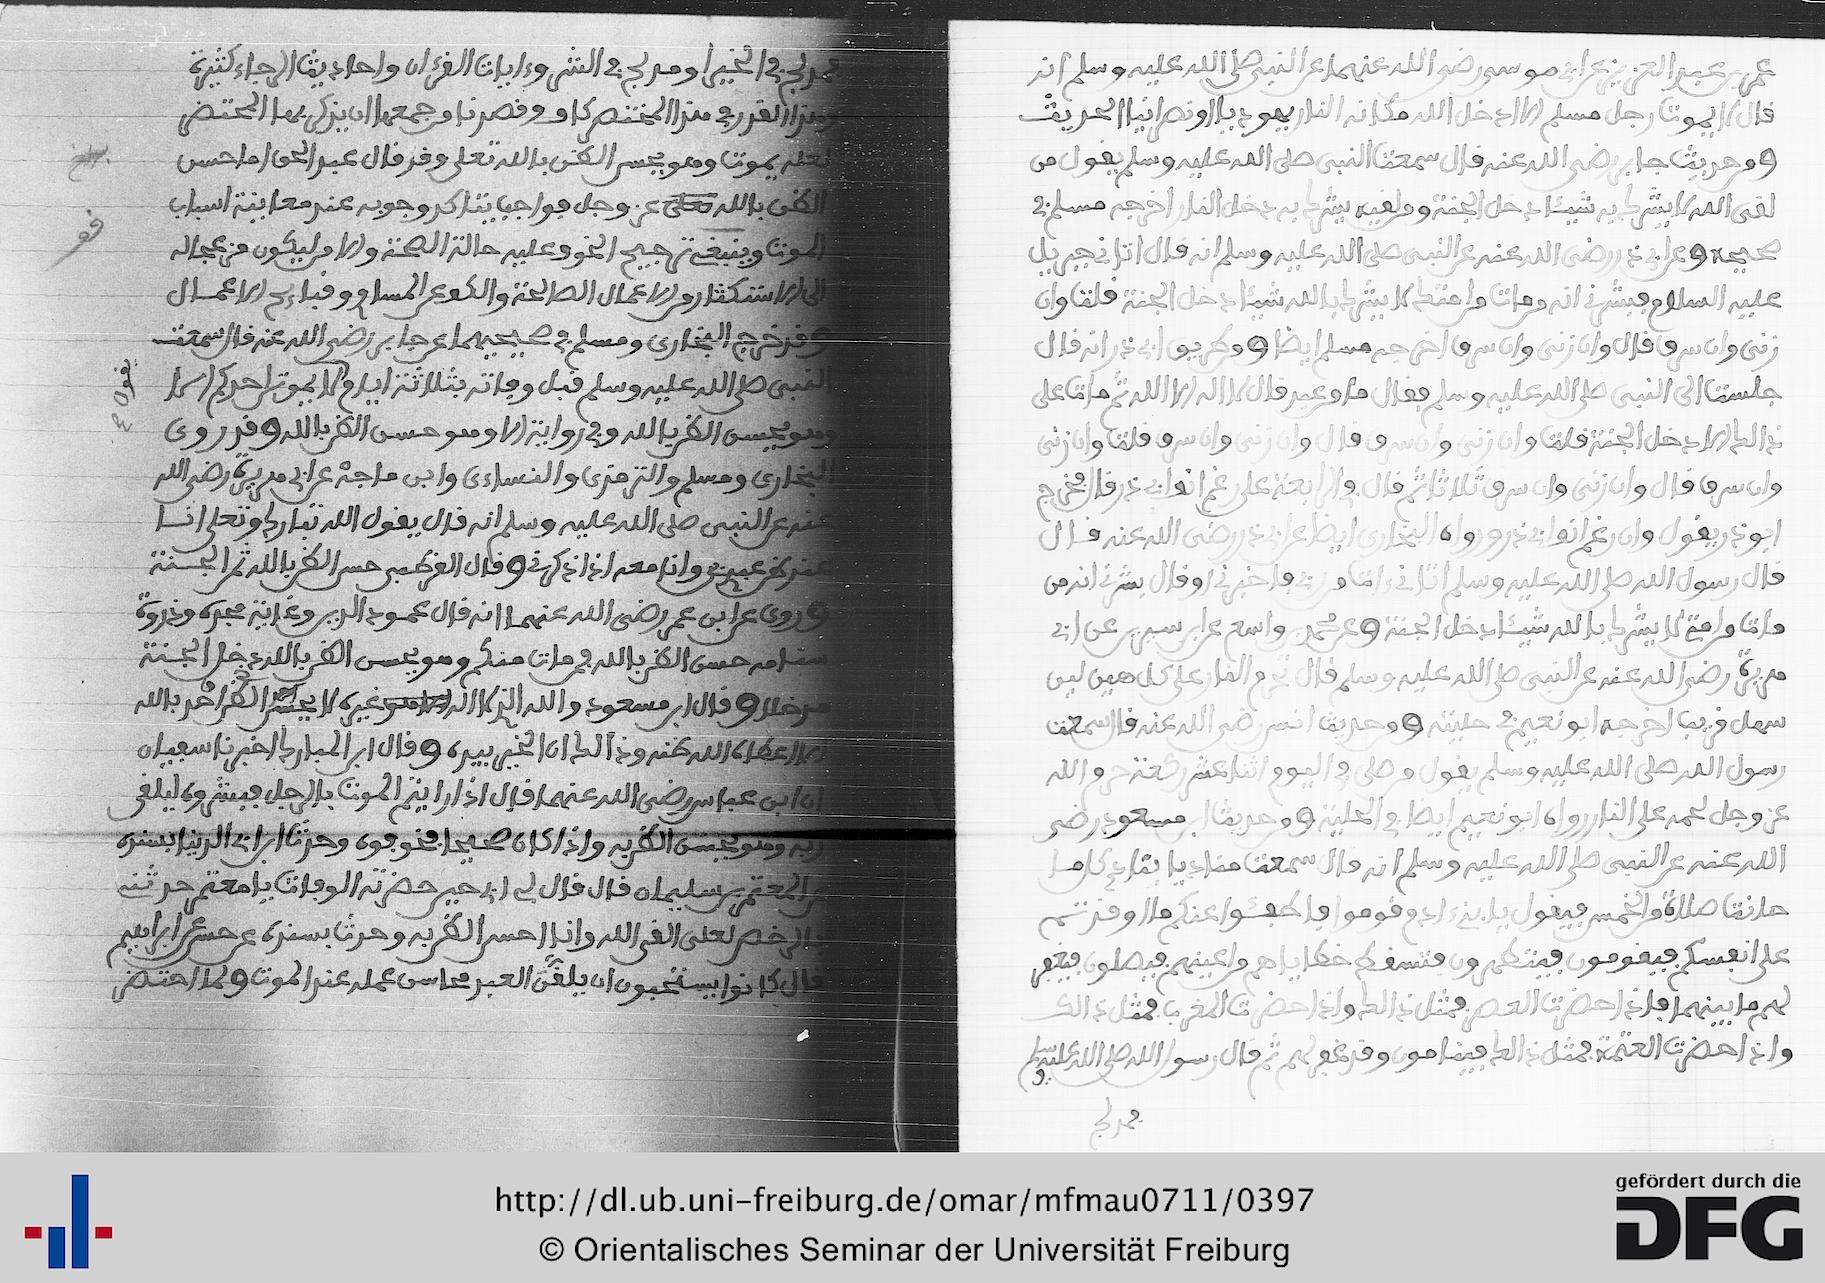 عمر بن عبد العزيز عن ابي موسى رضي الله عنهما عن النبي صلى الله عليه وسلم انه
قال لا يموت رجل مسلم الا ادخل الله مكانه النار يهوديا او نصرانيا الحديث
و وحديث جابر رضي الله عنه قال سمعت النبي صلى الله عليه وسلم يقول من
لقي الله لا يشرك به شيئا دخل الجنة ومن لقيه يشرك به دخل النار اخرجه مسلم في
صحيحه و عن ابي ذر رضي الله عنه عن النبي صلى الله عليه وسلم انه قال اتاني جبريل
عليه السلام فبشرني انه من مات من امتك لا يشرك بالله شيئا دخل الجنة قلت وان
زنى وان سرق قال وان زنى وان سرق اخرجه مسلم ايضا و وطريق ابي ذر انه قال
جلست الى النبي صلى الله عليه وسلم فقال ما من عبد قال لا اله الا الله ثم مات على
ذالك الا دخل الجنة قلت وان زنى وان سرق قال وان زنى وان سرق قلت وان زنى
وان سرق قال وان زنى وان سرق ثلاثا ثم قال في الرابعة على رغم انف ابي ذر قال فخرج
ابو ذر يقول وان رغم انف ابي ذر ورواه البخاري ايضا عن ابي ذر رضي الله عنه قال
قال رسول الله صلى الله عليه وسلم اتاني ءات من ربي فاخبرني او قال بشرني انه من
مات من امتي لا يشرك بالله شيئا دخل الجنة و عن محمد بن واسع عن ابن سيرين عن ابي
هريرة رضي الله عنه عن النبي صلى الله عليه وسلم قال تحرم النار على كل هين لين
سهل قريب اخرجه ابو نعيم في حليته و وحديث انس رضي الله عنه قال سمعت
رسول الله صلى الله عليه وسلم يقول من صلى في اليوم اثنا عشر ركعة حرم الله
عز وجل لحمه على النار رواه ابو نعيم ايضا في الحلية و وحديث ابن مسعود رضي
الله عنه عن النبي صلى الله عليه وسلم انه قال سمعت مناديا ينادي كلما
حانت صلاة من الخمس فيقول يا بني ءادم قوموا فاطفئوا عنكم ما اوقدتم
على انفسكم فيقومون فيتطهرون فتسقط خطاياهم من اعينهم فيصلون فيغفر
لهم ما بينهما فاذا احضرت العصر فمثل ذالك واذا حضرت المغرب فمثل ذالك
واذا حضرت العتمة فمثل ذالك فينامون وقد غفر لهم ثم قال رسول الله صلى الله عليه وسلم
فمدلج
فمدلج في الخير او مدلج في الشر وءايات القرءان واحاديث الرجاء كثيرة
وهذا القدر في هذا المختصر كاف وقصدنا من جمعها ان يذكر بها المحتضر
لعله يموت وهو يحسن الظن بالله تعلى وقد قال عبد الحق اما حسن
الظن بالله تعلى عز وجل فواجب يتاكد وجوبه عند معاينة اسباب
الموت وينبغي ترجيح الخوف عليه حالة الصحة والامن ليكون مزعجا له
الى الاستكثار من الاعمال الصالحة والكف عن المساوي وقبايح الاعمال
وقد خرج البخاري ومسلم في صحيحيهما عن جابر رضي الله عنه قال سمعت
النبي صلى الله عليه وسلم قبل وفاته بثلاثة ايام لا يموتن احدكم الا
يقول
وهو يحسن الظن بالله وفي رواية الا وهو حسن الظن بالله و قد روى
البخاري ومسلم والترمذي والنساءي وابن ماجة عن ابي هريرة رضي الله
عنه عن النبي صلى الله عليه وسلم انه قال يقول الله تبارك وتعلى انا
عند ظن عبدي بي وانا معه اذا ذكرني و قال القرطبي حسن الظن بالله ثمن الجنة
و روى عن ابن عمر رضي الله عنهما انه قال عمود الدين وغاية مجده وذروة
سنامه حسن الظن بالله فمن مات منكم وهو يحسن الظن بالله دخل الجنة
و قال ابن مسعود والله الذي لا اله غيره لا يحسن الظن احد بالله
الا اعطاه الله ظنه وذالك ان الخير بيده و قال ابن المبارك اخبرنا سفيان
ان ابن عباس رضي الله عنهما قال اذا رايتم الموت بالرجل فبشروه ليلقى
ربه وهو يحسن الظن به واذا كان صحيحا فخوفوه وحدث ابن ابي الدنيا بسنده
عن المعتمر بن سليمان قال قال لي ابي حين حضرته الوفات يا معتمر حدثني
بالرخص لعلي القى الله وانا احسن الظن به وحدث بسنده عن حصين عن ابراهيم
قال كانوا يستحبون ان يلقن العبد محاسن عمله عند الموت و لما احتضر
http://dl.ub.uni-freiburg.de/omar/mfmau0711/0397
© Orientalisches Seminar der Universität Freiburg
gefördert durch die
DFG